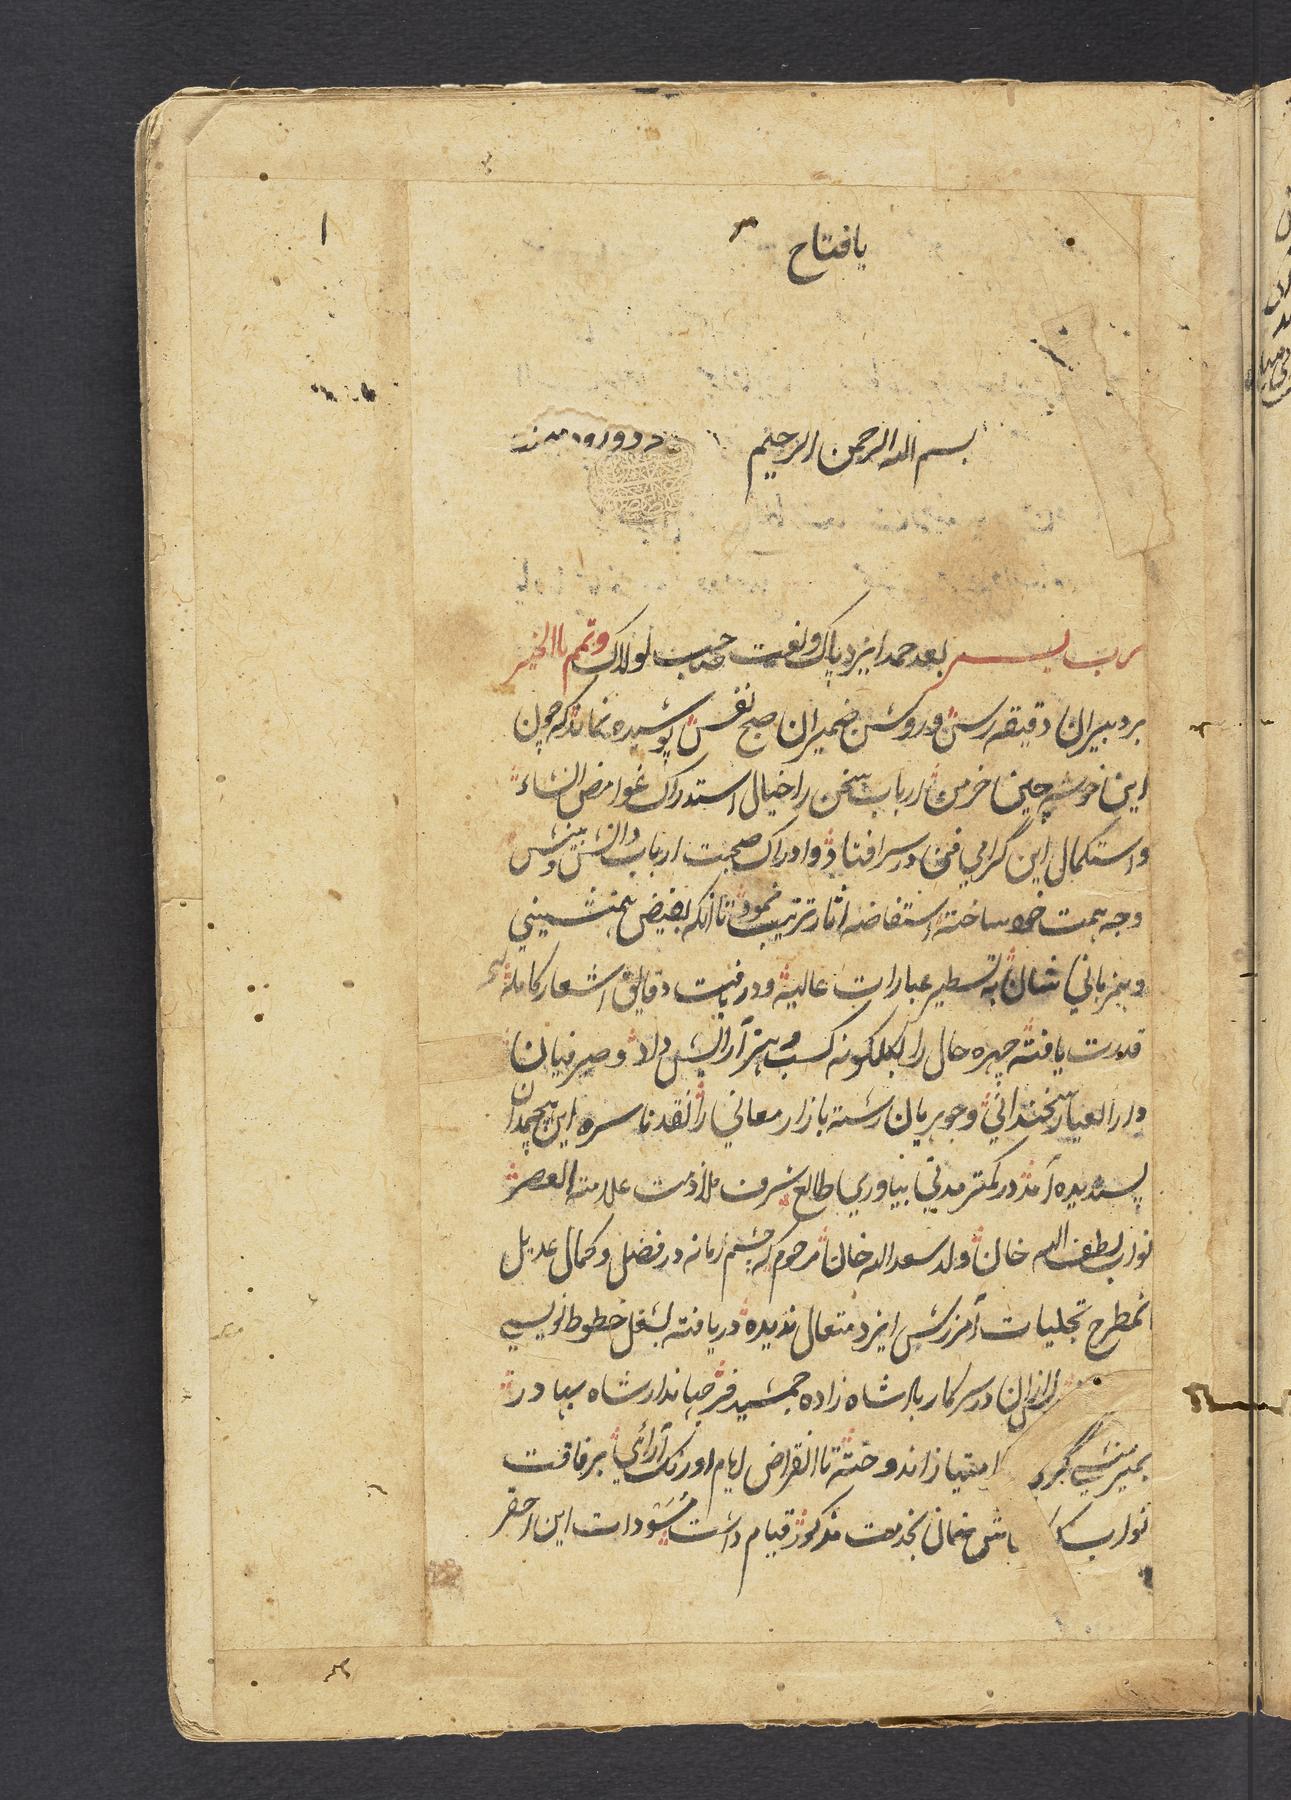 ۱
یا فتاح
بسم الله الرحمن الرحیم
رب یسر بعد حمد ایزد پاک و نعت صاحب لولاک وتمم باالخیر
بر دبیران دقیقه رس و روشن ضمیران صبح نفس پوشیده نماند که چون
این خوشه چین خرمن ارباب سخن را خیال استدراک غوامض انشاء
و استکمال این گرامی فن در سر افتاد و ادراک صحبت ارباب دانش و بینش
وجه همت خود ساخته استفاضه آثار ترتیب نمود تا آنکه بفیض همنشینی
و همزبانی شان به تسطیر عبارات عالیه و دریافت دقایق اشعار کامله
قدرت یافته چهره حال را بگلگونه کسب هنر آرایش داد و صیرفیان
دار العیار سخندانی و جوهریان رسته بازار معانی را نقد ناسره این هیچمدان
پسندیده آمد در کمتر مدتی بیاوری طالع شرف ملازمت علامة العصر
نواب لطف الله خان ولد سعد الله خان مرحوم که چشم زمانه در فضل و کمال عدیل
آنمطرح تجلیات آمرزش ایزد متعال ندیده دریافته بشغل خطوط نویسی
پس ازان در سرکار بادشاه زاده جمشید فر جهاندار شاه بهادر
بمیر منشی گری امتیاز اندوخته تا انقراض ایام اورنگ آرائی برفاقت
نواب خان بخدمت مذکور قیام داشت مسودات این احقر